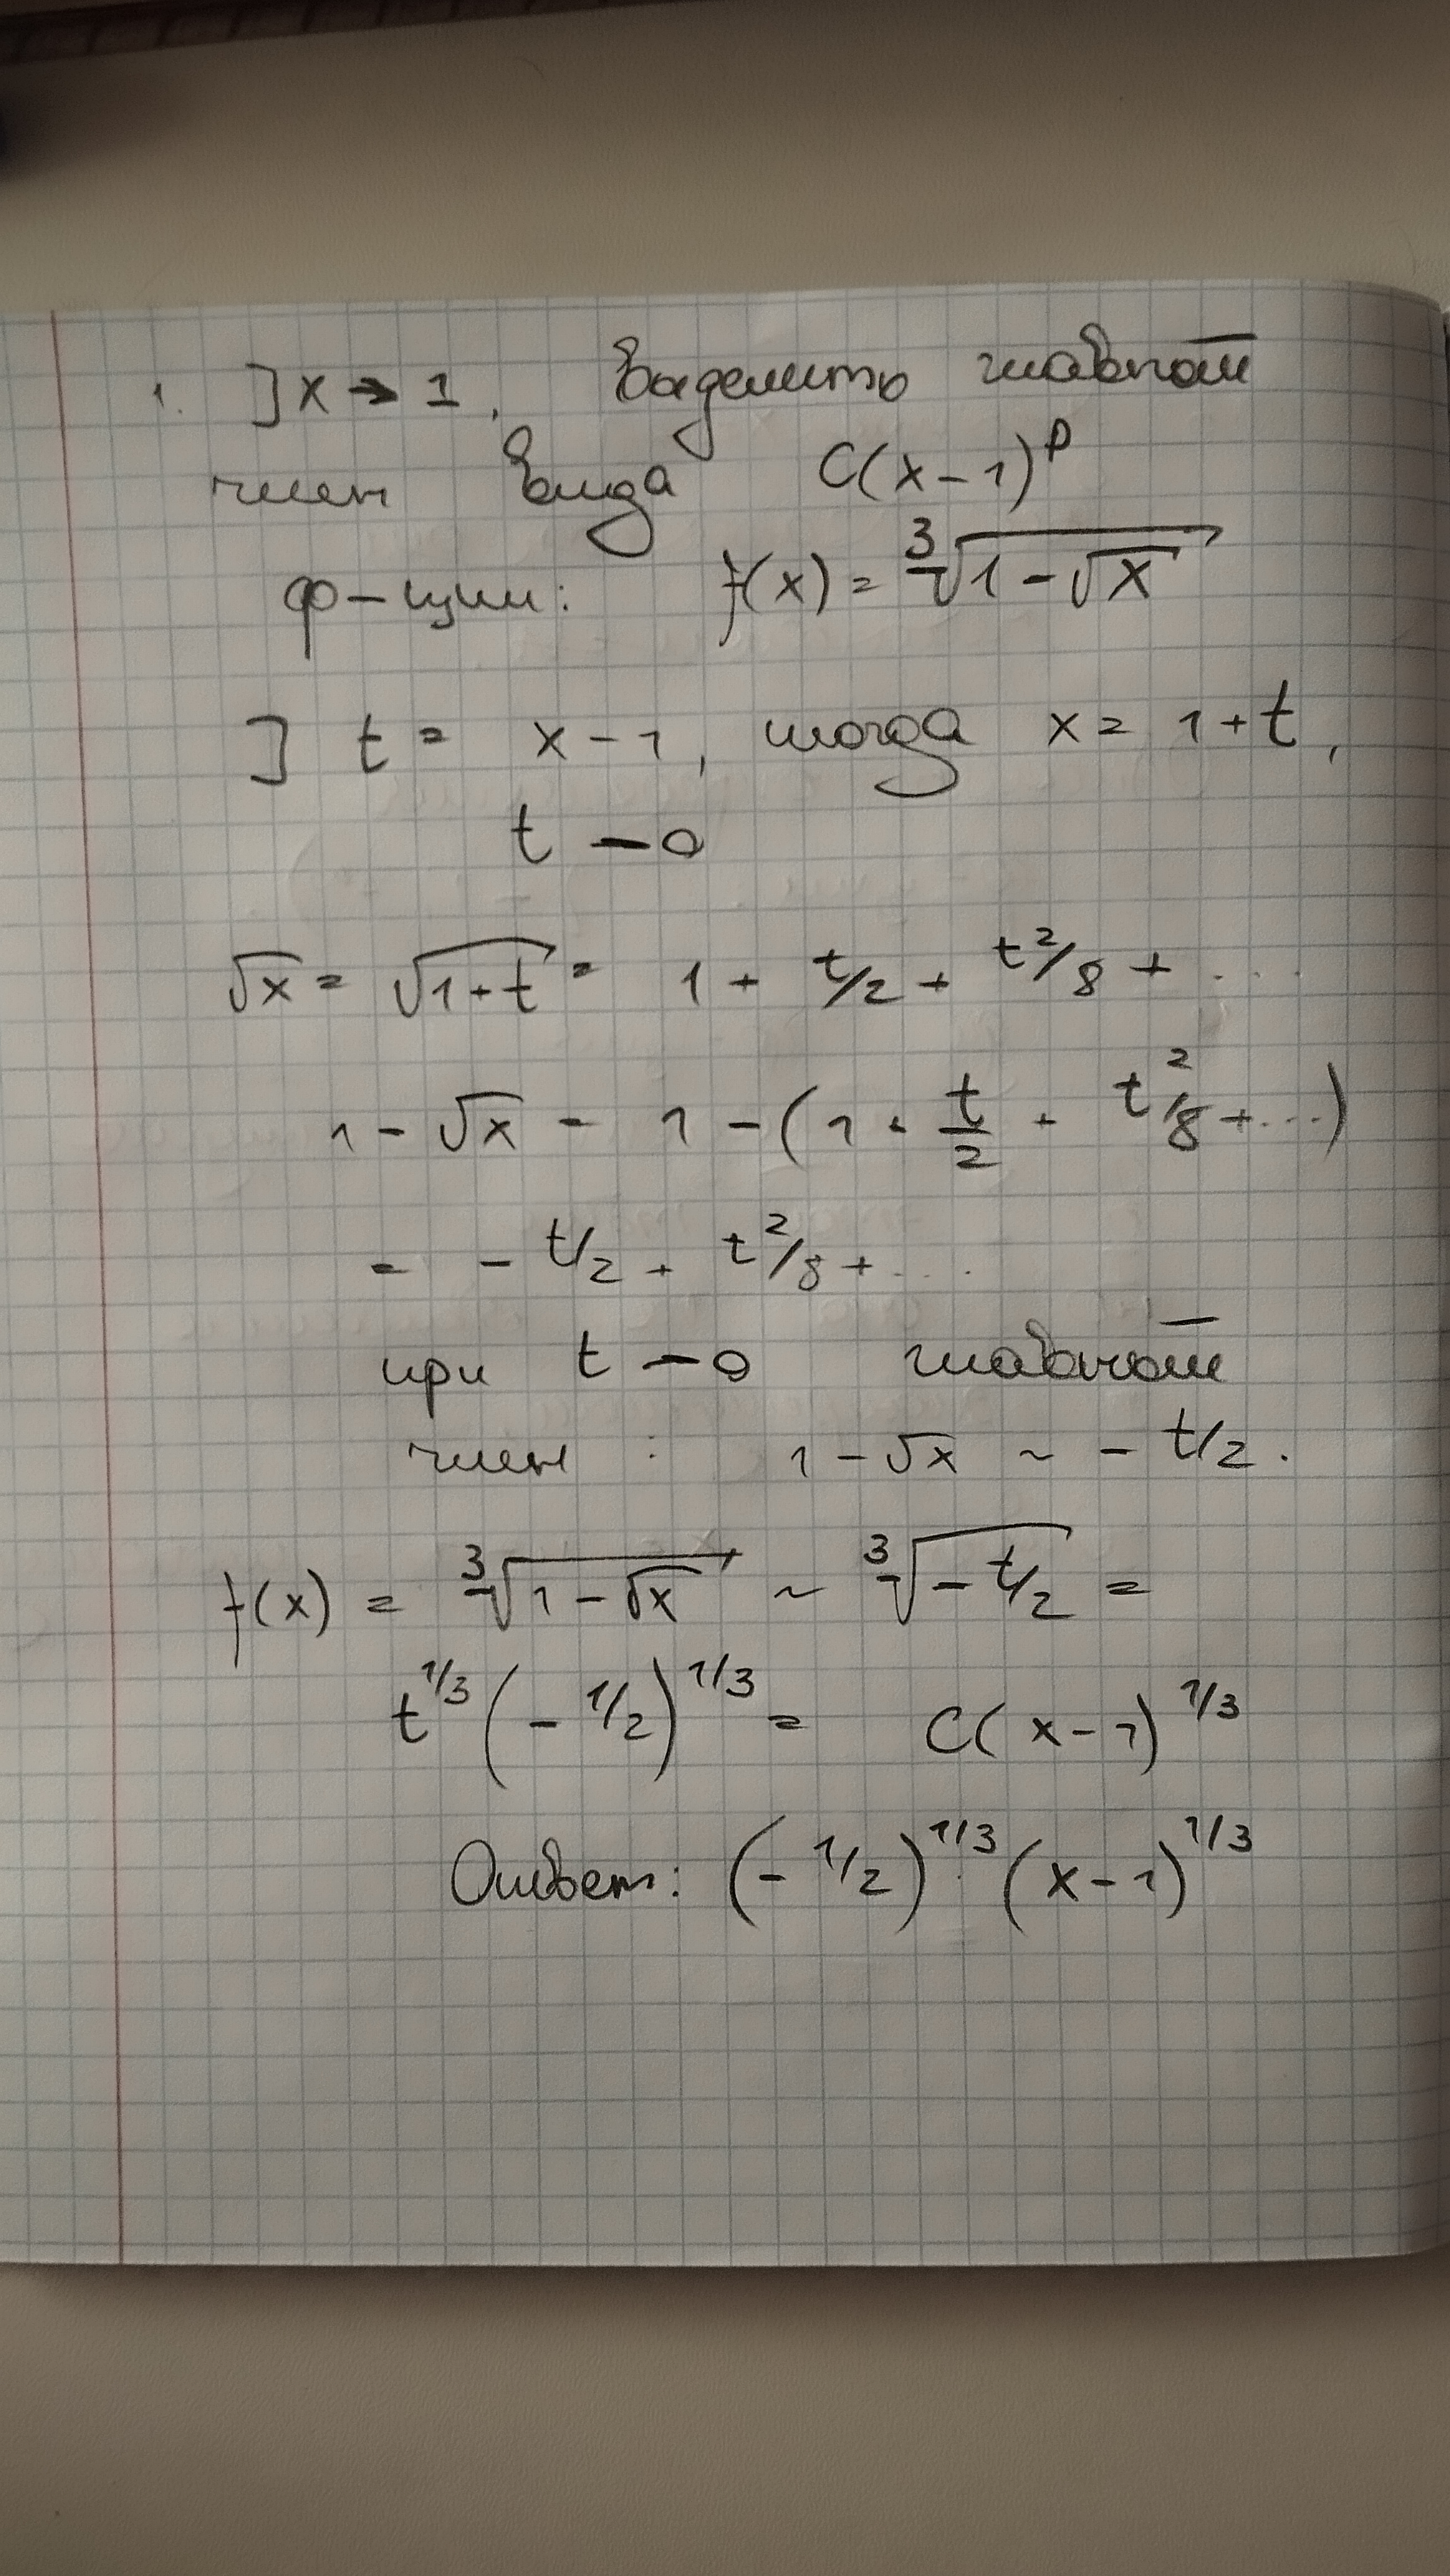 1. ] x → 1, Выделить главной
член вида C(x-1)^p
ф-ции: f(x) = ³√(1-√x)
] t = x-1, тогда x = 1+t,
t → 0
√x = √(1+t) = 1 + t/2 + t²/8 + ...
1-√x = 1-(1 + t/2 + t²/8 + ...)
= - t/2 + t²/8 + ...
при t → 0 главной
член : 1-√x ~ - t/2.
f(x) = ³√(1-√x) ~ ³√(-t/2) =
t^1/3 (-1/2)^1/3 = C(x-1)^1/3
Ответ: (-1/2)^1/3 (x-1)^1/3